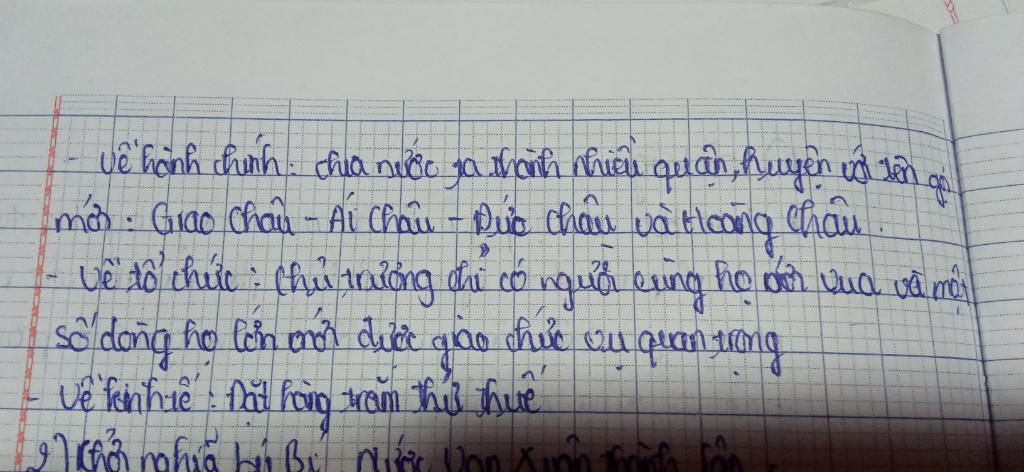 - Về hành chính: chia nước ga thành nhiều quận, huyện với tên gọi
mới: Giao Châu - Ái Châu - Đức Châu và Hoàng Châu.
- Về tổ chức: Chủ trương chỉ có người cùng họ với vua và một
số dòng họ lớn mới được giao chức vụ quan trọng
- Về kinh tế: Đặt hàng trăm thứ thuế
2) Khởi nghĩa Lý Bí. Nước Vạn Xuân thành lập